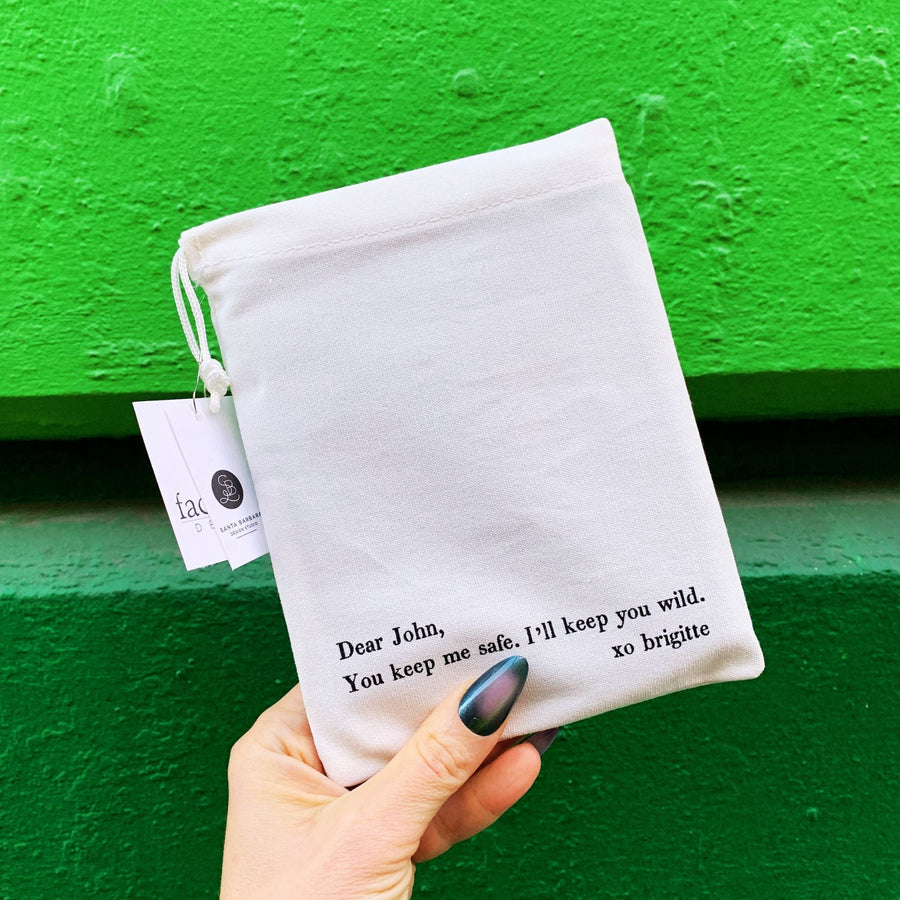 Dear John,
You keep me safe. I'll keep you wild.
xo brigitte
SANTA BARBARA
DESIGN STUDIO